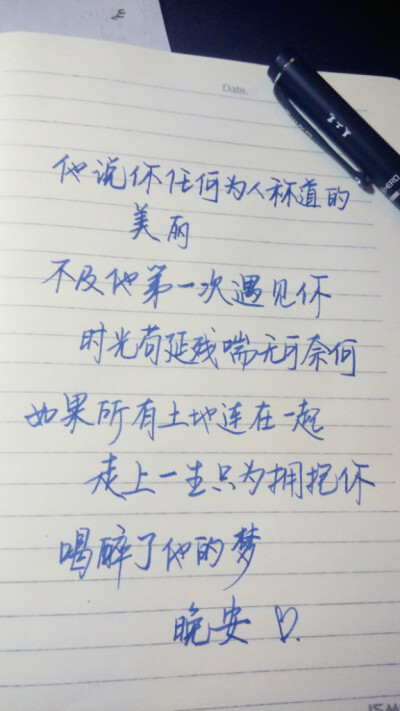 Date.
他说你任何为人称道的
美丽
不及他第一次遇见你
时光苟延残喘无可奈何
如果所有土地连在一起
走上一生只为拥抱你
喝醉了他的梦
晚安♡.
HERO